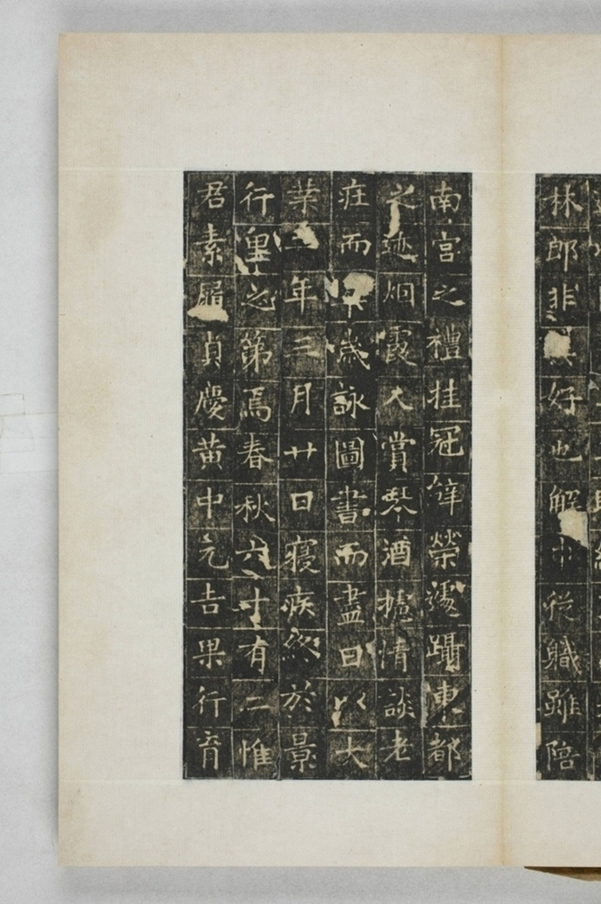 林郎非好也解巾從職雖陪
南宮之禮挂冠辤榮遽躡東都
之迹烟霞入賞琴酒攄情談老
莊而卒歲詠圖書而盡日以大
業年三月廿日寑疾終於景
行里之第焉春秋六十有二惟
君素履貞慶黄中元吉果行育